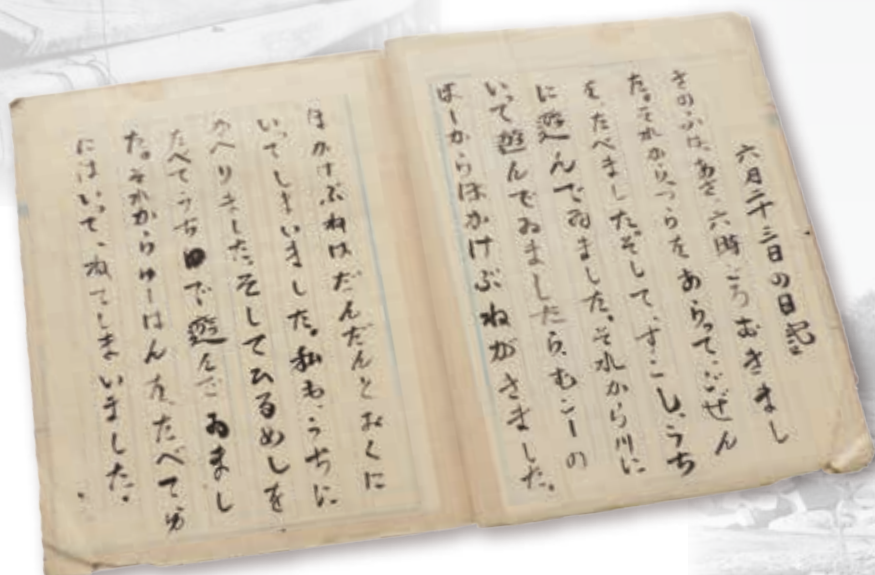 六月二十三日の日記
きのふは、あさ、六時ごろむきまし
た。それから、つらをあらって、ごぜん
を、たべました。そして、すこし、うち
に遊んでゐました。それから川に
いって遊んでゐましたら、むこーの
ほーからほかけぶねがきました。
ほかけぶねはだんだんとおくに
いってしまいました。私も、うちに
かへりました。そしてひるめしを
たべてうちで遊んでゐまし
た。それからゆーはんを、たべて
にはいって、ねてしまいました。